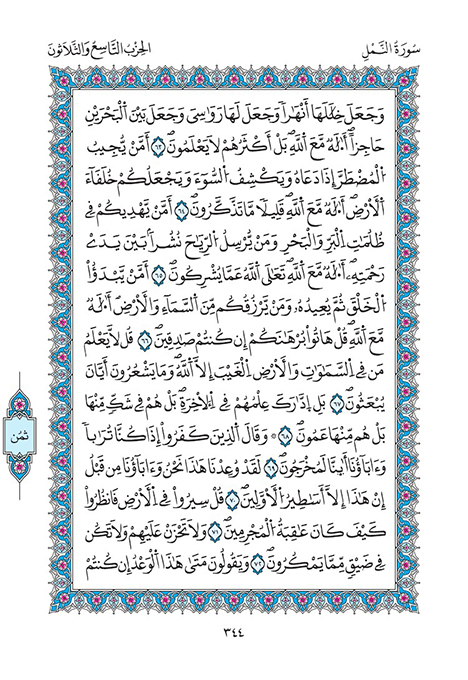 سُورَةُ النَّمْلِ
الحِزْبُ التَّاسِعُ وَالثَّلَاثُونَ
وَجَعَلَ خِلَٰلَهَا أَنْهَٰراً وَجَعَلَ لَهَا رَوَٰسِىَ وَجَعَلَ بَيْنَ اَ۬لْبَحْرَيْنِ
حَاجِزاًۖ اَ۟لَٰهٞ مَّعَ اَ۬للَّهِۖ بَلَ اَكْثَرُهُمْ لَا يَعْلَمُونَۖ ٦٣ أَمَّنْ يُّجِيبُ
اُ۬لْمُضْطَرَّ إِذَا دَعَاهُ وَيَكْشِفُ اُ۬لسُّوٓءَ وَيَجْعَلُكُمْ خُلَفَآءَ
اَ۬لْأَرْضِۖ أَ۟لَٰهٞ مَّعَ اَ۬للَّهِۖ قَلِيلاٗ مَّا تَذَّكَّرُونَۖ ٦٤ أَمَّنْ يَّهْدِيكُمْ فِے
ظُلُمَٰتِ اِ۬لْبَرِّ وَالْبَحْرِ وَمَنْ يُّرْسِلُ اُ۬لرِّيَٰحَ نُشُراَۢ بَيْنَ يَدَےْ
رَحْمَتِهِۦٓۖ أَ۟لَٰهٞ مَّعَ اَ۬للَّهِۖ تَعَٰلَى اَ۬للَّهُ عَمَّا يُشْرِكُونَۖ ٦٥ أَمَّنْ يَّبْدَؤُاْ
اُ۬لْخَلْقَ ثُمَّ يُعِيدُهُۥ وَمَنْ يَّرْزُقُكُم مِّنَ اَ۬لسَّمَآءِ وَالْأَرْضِۖ أَ۟لَٰهٞ
مَّعَ اَ۬للَّهِۖ قُلْ هَاتُواْ بُرْهَٰنَكُمُۥٓ إِن كُنتُمْ صَٰدِقِينَۖ ٦٦ قُل لَّا يَعْلَمُ
مَن فِے اِ۬لسَّمَٰوَٰتِ وَالْأَرْضِ اِ۬لْغَيْبَ إِلَّا اَ۬للَّهُۖ وَمَا يَشْعُرُونَ أَيَّانَ
يُبْعَثُونَۖ ٦٧ بَلِ اِ۪دَّٰرَكَ عِلْمُهُمْ فِے اِ۬لْأٓخِرَةِۖ بَلْ هُمْ فِے شَكّٖ مِّنْهَاۖ
بَلْ هُم مِّنْهَا عَمُونَۖ ٦٨ ۞ وَقَالَ اَ۬لذِينَ كَفَرُوٓاْ إِذَا كُنَّا تُرَٰباٗ
وَءَابَآؤُنَآ أَى۪نَّا لَمُخْرَجُونَۖ ٦٩ لَقَدْ وُعِدْنَا هَٰذَا نَحْنُ وَءَابَآؤُنَا مِن قَبْلُ
إِنْ هَٰذَآ إِلَّآ أَسَٰطِيرُ اُ۬لَاوَّلِينَۖ ٧٠ قُلْ سِيرُواْ فِے اِ۬لْأَرْضِ فَانظُرُواْ
كَيْفَ كَانَ عَٰقِبَةُ اُ۬لْمُجْرِمِينَۖ ٧١ وَلَا تَحْزَنْ عَلَيْهِمْ وَلَا تَكُن
فِے ضَيْقٖ مِّمَّا يَمْكُرُونَۖ ٧٢ وَيَقُولُونَ مَتَىٰ هَٰذَا اَ۬لْوَعْدُ إِن كُنتُمْ
ثمن
٣٤٤